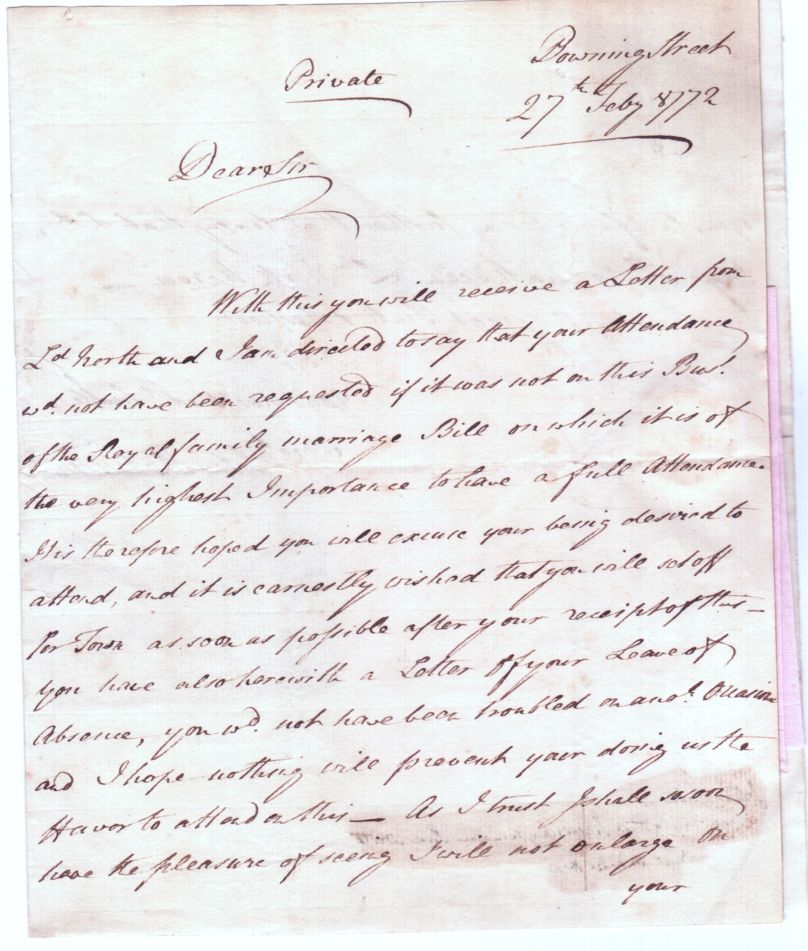 Downing Street
Private
27th Feby 1772
Dear Sir
With this you will receive a Letter from
Ld North and I am directed to say that your Attendance
wd. not have been requested if it was not on this Bus.
of the Royal family marriage Bill on which it is of
the very highest Importance to have a full Attendance.
It is therefore hoped you will excuse your being desired to
attend, and it is earnestly wished that you will set off
for Town as soon as possible after your receipt of this —
you have also herewith a Letter of your Leave of
Absence, you wd. not have been troubled on anor. Occasion
and I hope nothing will prevent your doing us the
Favor to attend on this — As I trust I shall soon
have the pleasure of seeing I will not enlarge on
your